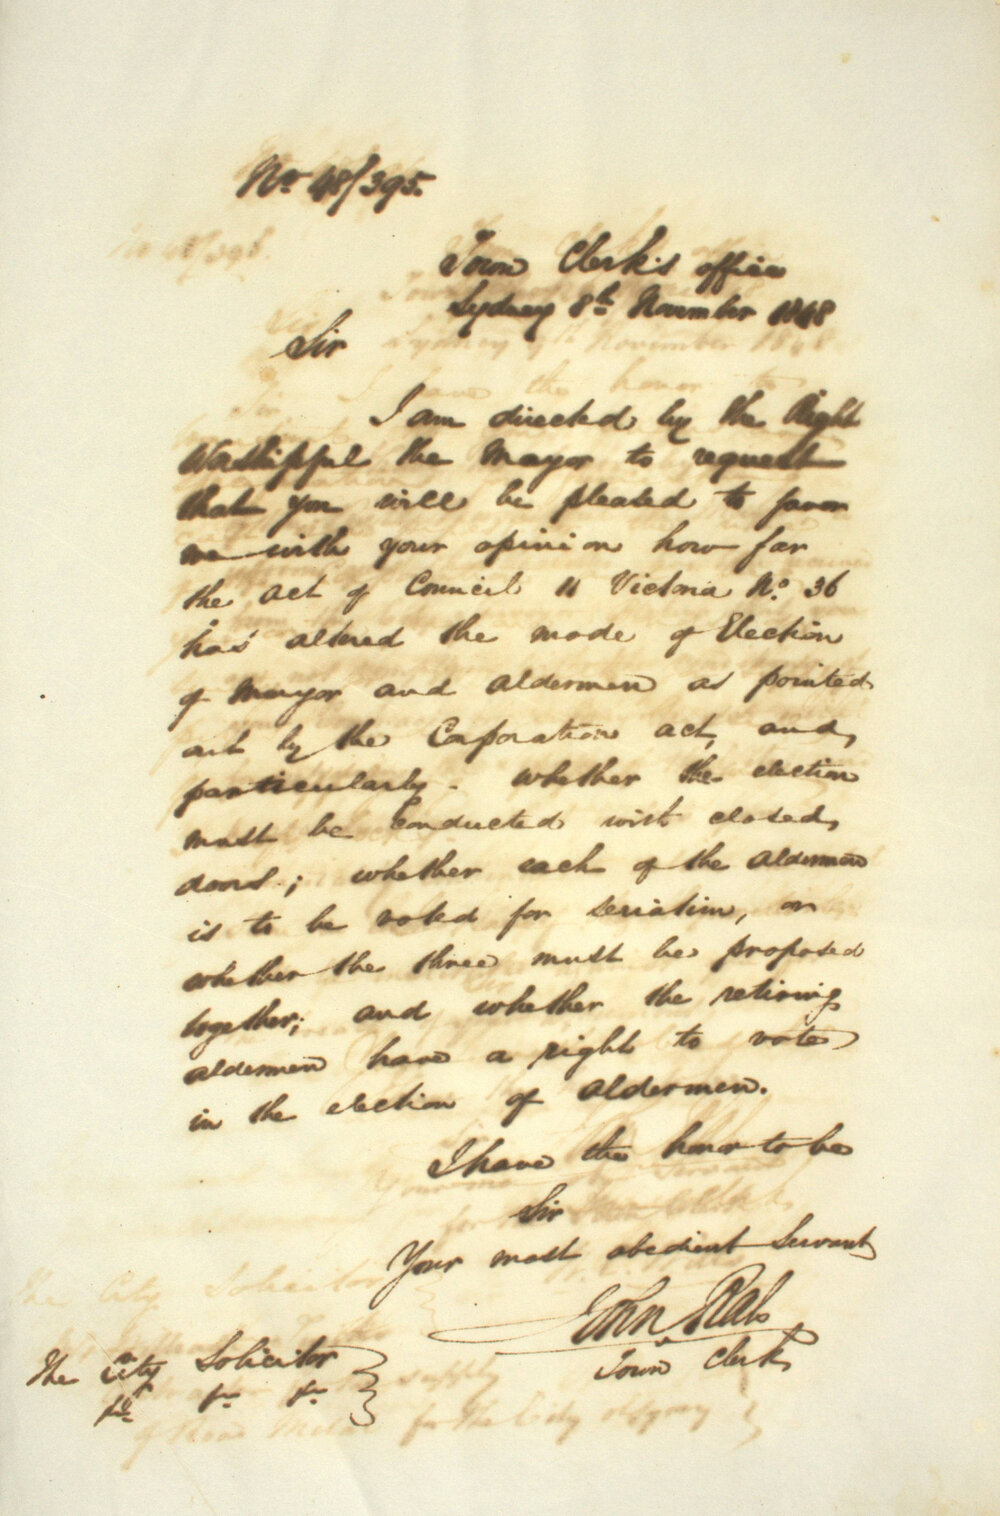 No 48/395.
Town Clerk's office
Sydney 8th November 1848
Sir
I am directed by the Right
Worshipful the Mayor to request
that you will be pleased to favor
me with your opinion how far
the act of Council 11 Victoria No. 36
has altered the mode of Election
of Mayor and aldermen as pointed
out by the Corporation act, and,
particularly. whether the election
must be conducted with closed,
doors; whether each of the aldermen
is to be voted for seriatim, or
whether the three must be proposed
together; and whether the retiring
aldermen have a right to vote
in the election of aldermen.
I have the honor to be
Sir
Your most obedient Servant
John Rae
Town Clerk
The City Solicitor